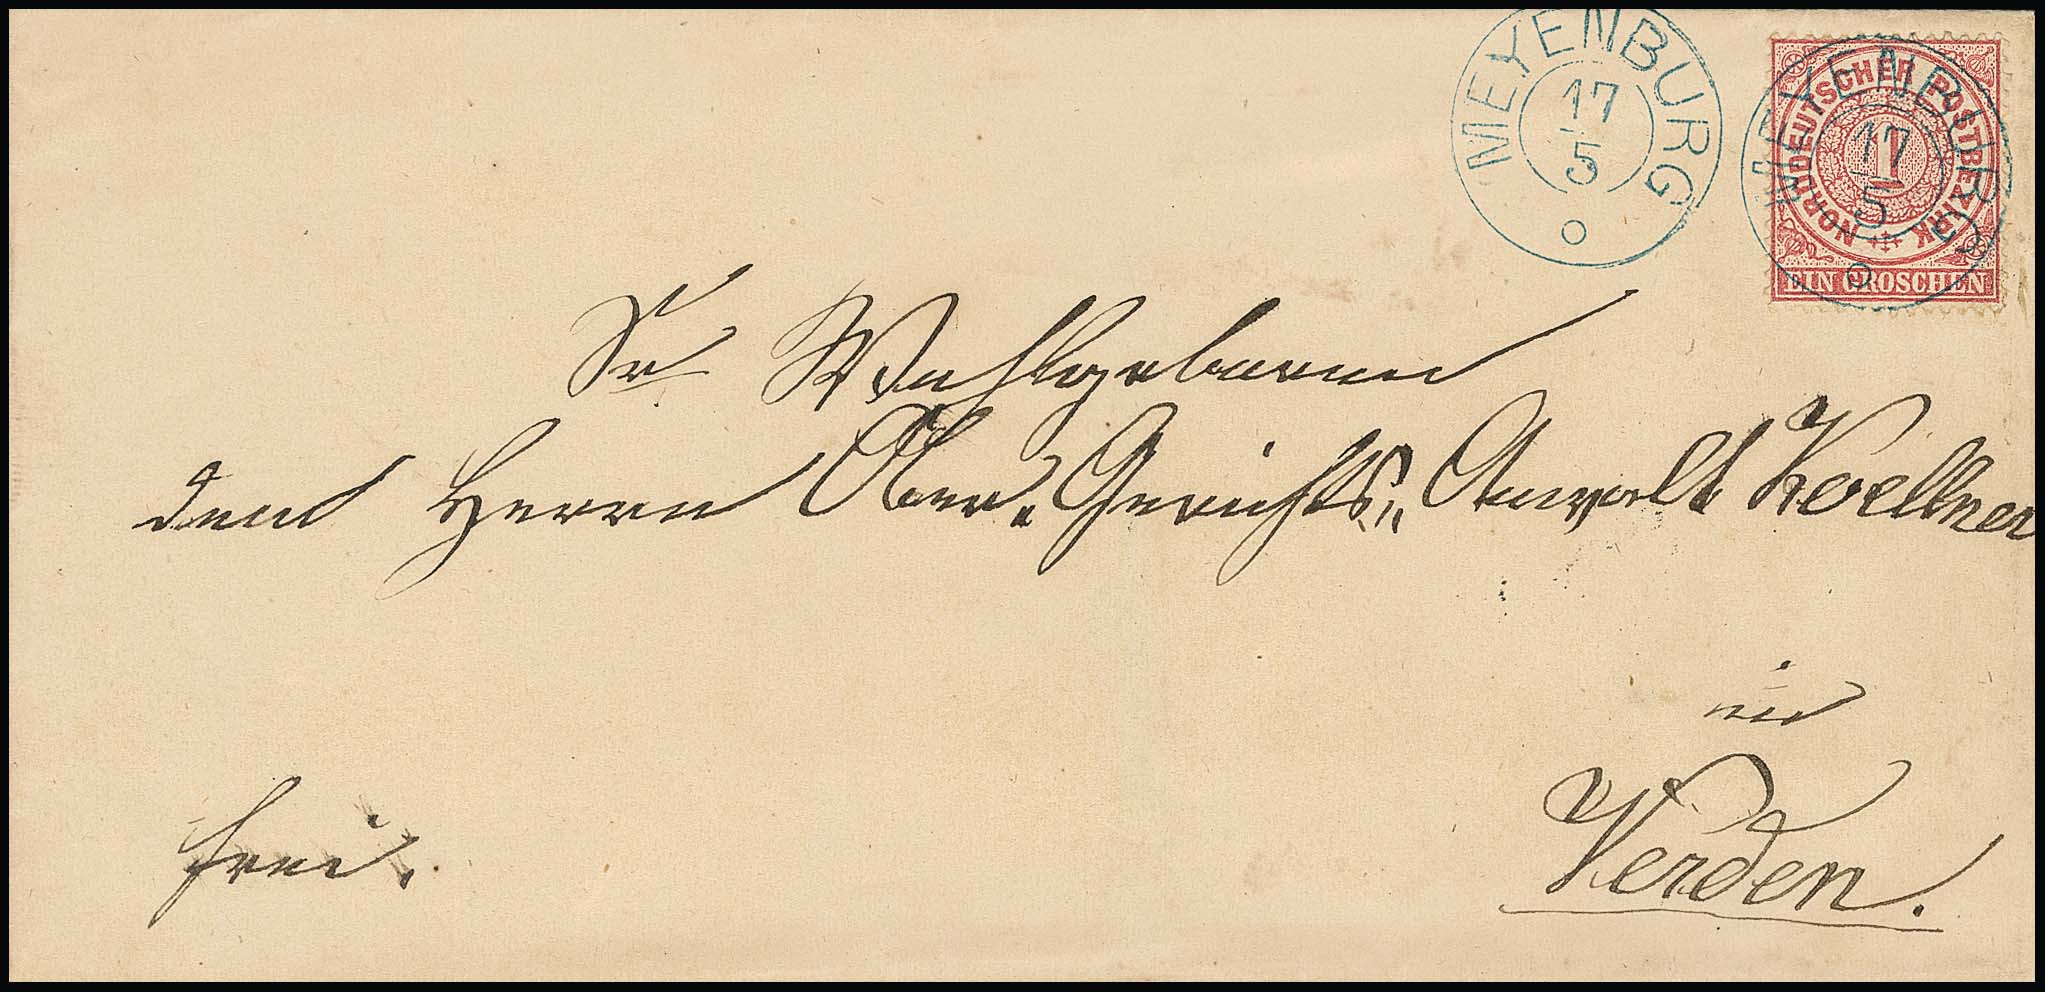 MEYENBURG
17
5
MEYENBURG
17
5
NORDDEUTSCHER POSTBEZIRK
1
EIN GROSCHEN
Sr Wohlgeboren
dem Herrn Ober-Gerichts-Anwalt Koellner
in
Verden.
frei.